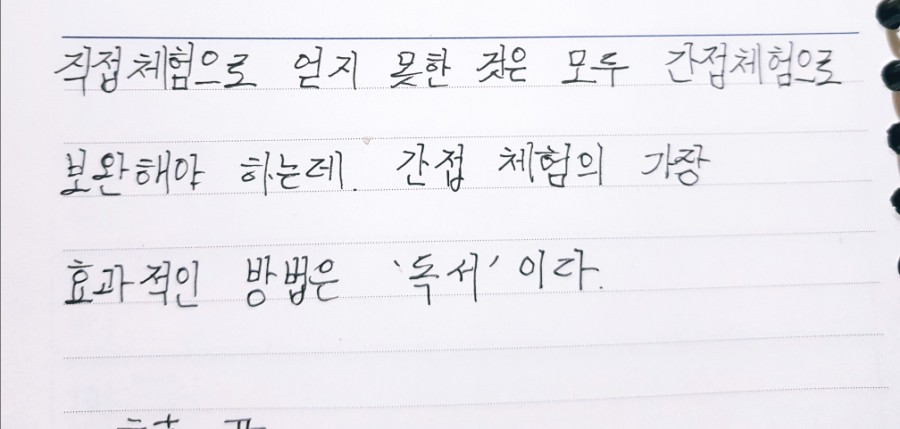 직접체험으로 얻지 못한 것은 모두 간접체험으로
보완해야 하는데. 간접 체험의 가장
효과적인 방법은 '독서'이다.